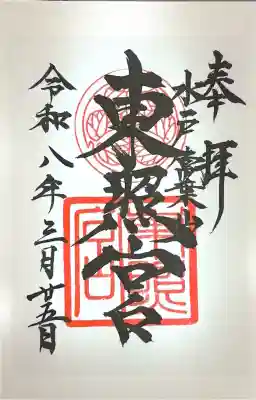 奉拝
水戸
東照宮
令和八年三月廿五日